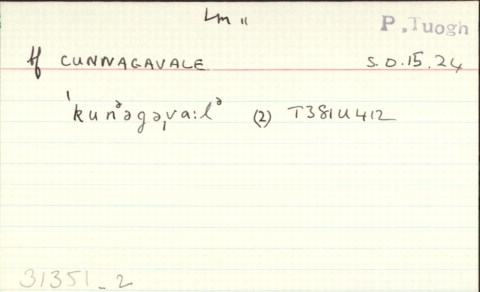 Lm "
P. Tuogh
Hf CUNNAGAVALE S.O.15.24
ˈkunᵊəgəˌvaːlᵊ (2) T381U412
31351_2